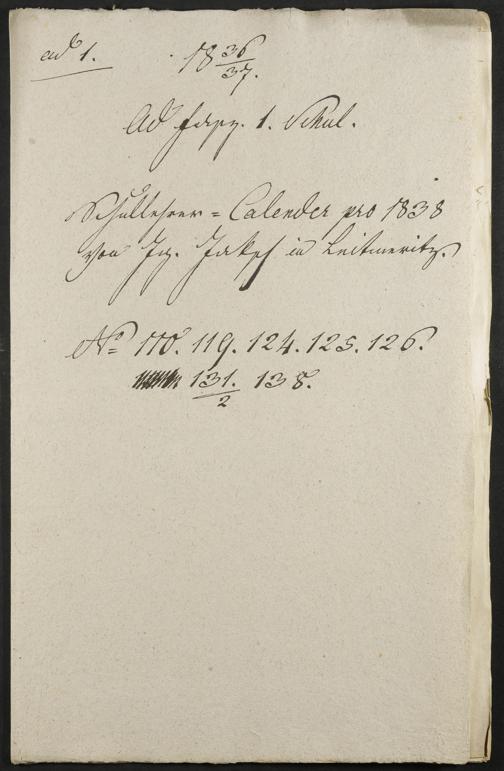 ad 1.
18 36/37.
Ad Fasz. 1. Schul.
Schullehrer = Calender pro 1838
von Ig. Jaksch in Leitmeritz.
No 110. 119. 124. 125. 126.
131./2 138.